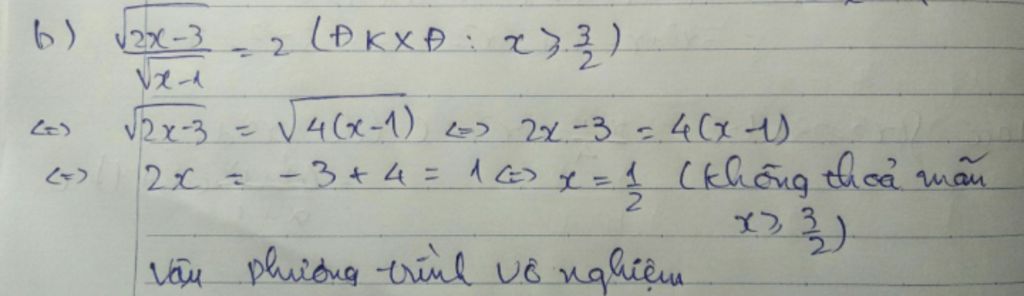 b) √(2x-3)/√(x-1) = 2 (ĐKXĐ : x ⩾ 3/2)
<=> √(2x-3) = √(4(x-1)) <=> 2x-3 = 4(x-1)
<=> 2x = -3 + 4 = 1 <=> x = 1/2 (không thoả mãn
x ⩾ 3/2)
Vậy phương trình vô nghiệm